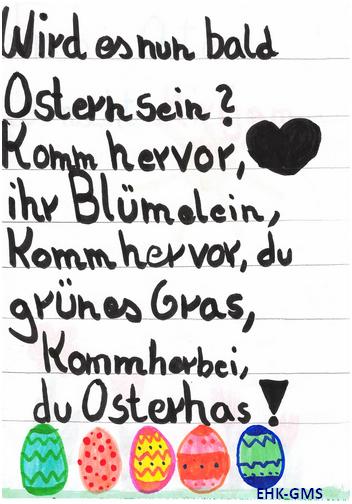 Wird es nun bald
Ostern sein?
Komm hervor,
ihr Blümelein,
Komm hervor, du
grünes Gras,
Komm herbei,
du Osterhas!
EHK-GMS